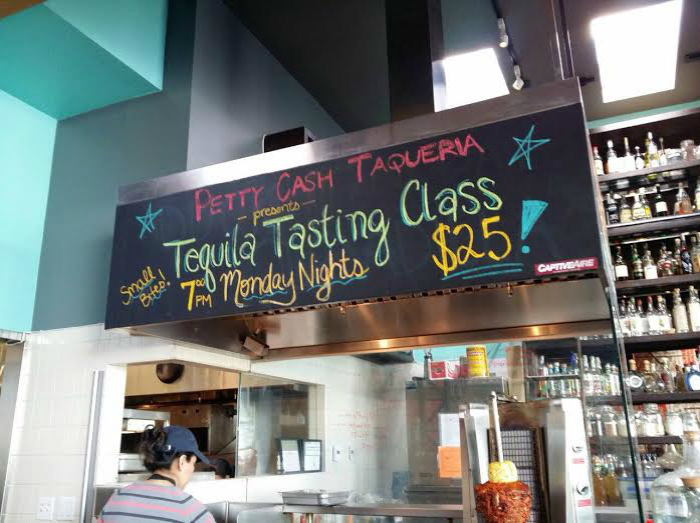 PETTY CASH TAQUERIA
— presents —
Tequila Tasting Class
Small Bites!
7:00 PM Monday Nights
$25!
CAPTIVEAIRE